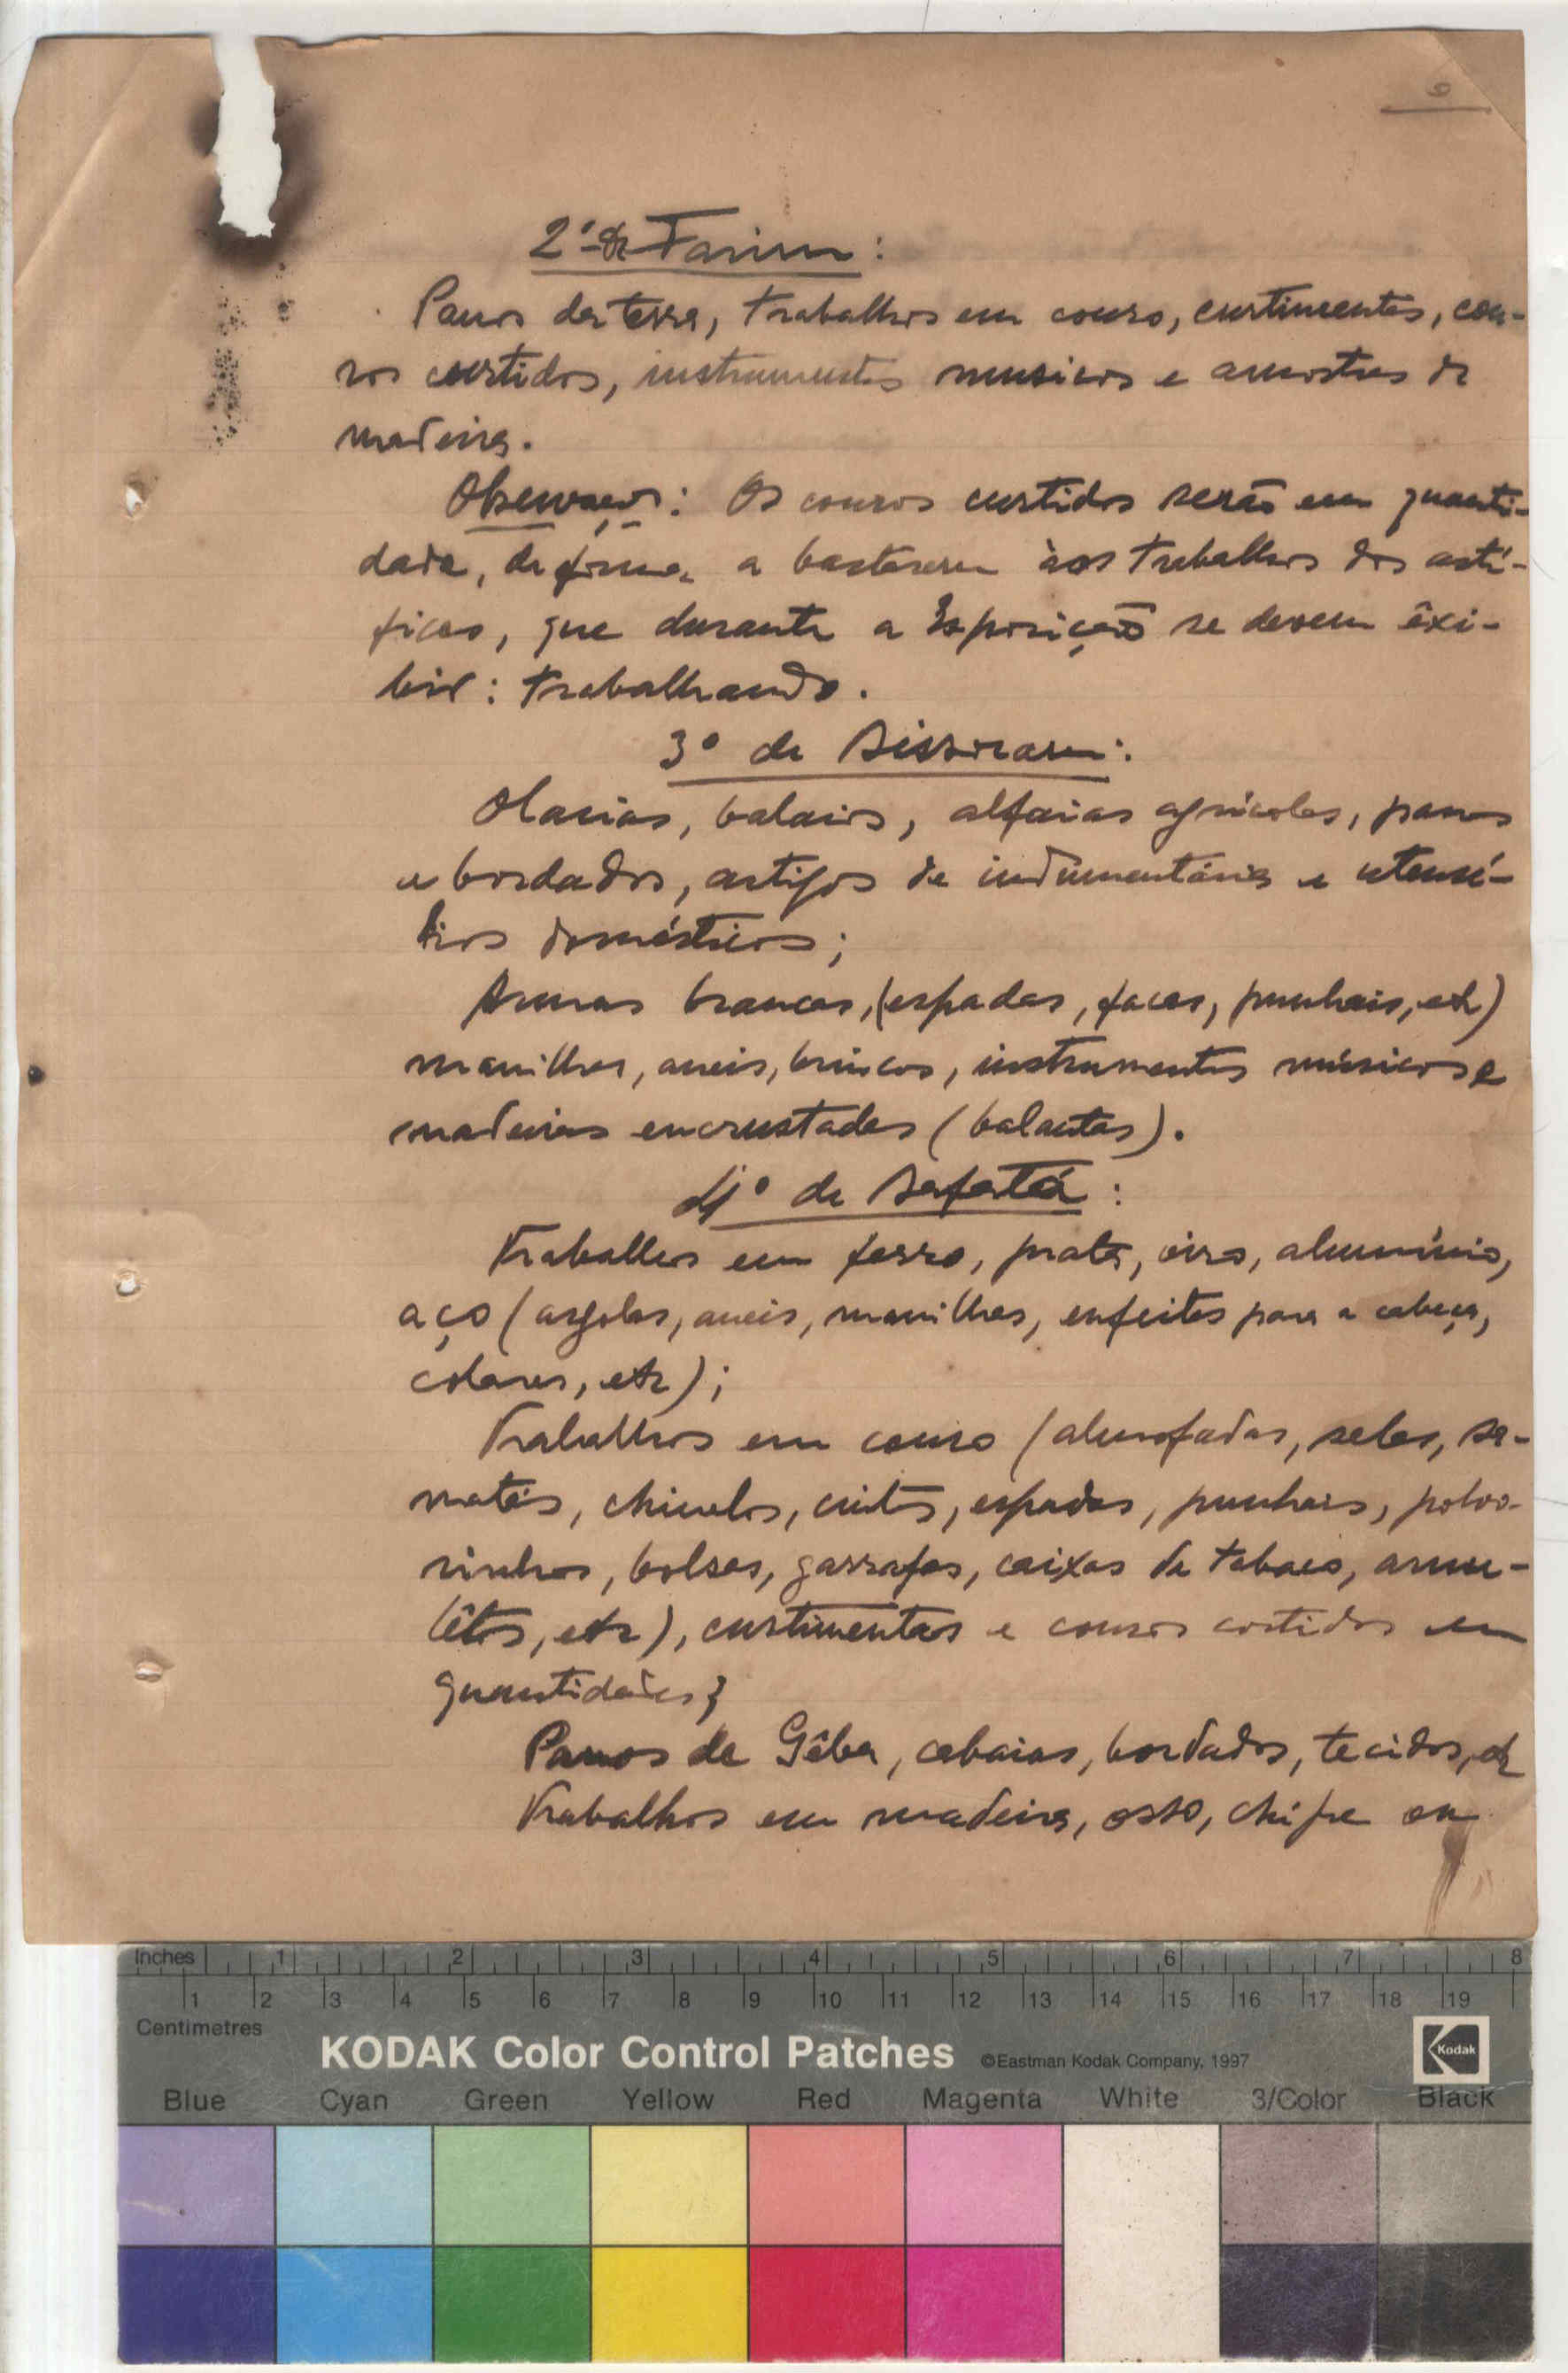 6
2º de Farim:
Panos da terra, trabalhos em couro, curtimentas, cou-
ros curtidos, instrumentos musicos e amostras de
madeira.
Observação: Os couros curtidos serão em quanti-
dade, de forma, a bastarem àos trabalhos dos artí-
fices, que durante a Esposição se devem êxi-
bir: trabalhando.
3º de Bissoram:
Olarias, balaios, alfaias agrícolas, panos
e bordados, artigos de indumentária e utensí-
lios domésticos;
Armas brancas, (espadas, facas, punhais, etc)
manilhas, aneis, brincos, instrumentos músicos e
madeiras encrustadas (balantas).
4º de Bafatá:
Trabalhos em ferro, prata, oiro, alumínio,
aço (argolas, aneis, manilhas, enfeites para a cabeça,
colares, etc);
Trabalhos em couro (almofadas, selas, sa-
patos, chinelos, cintos, espadas, punhais, polvo-
rinhos, bolsas, garrafas, caixas de tabaco, amu-
lêtos, etc), curtimentas e couros cortidos em
quantidades;
Panos de Gêba, cabaias, bordados, tecidos, etc
Trabalhos em madeira, osso, chifre ou
Inches 1 2 3 4 5 6 7 8
1 2 3 4 5 6 7 8 9 10 11 12 13 14 15 16 17 18 19
Centimetres
KODAK Color Control Patches ©Eastman Kodak Company, 1997 Kodak
Blue Cyan Green Yellow Red Magenta White 3/Color Black